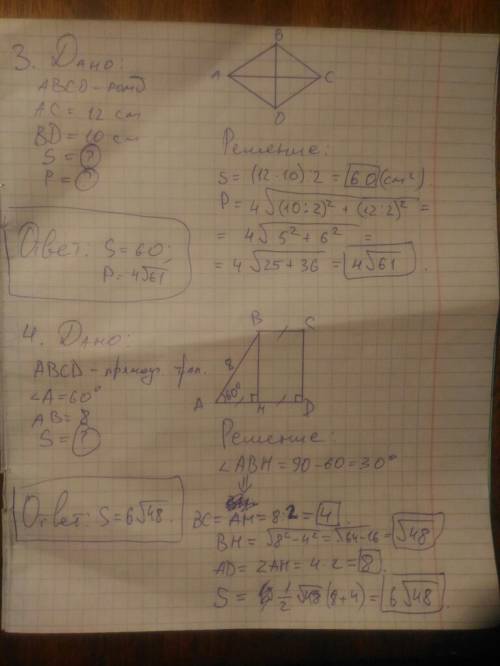 3. Дано:
ABCD - ромб
AC = 12 см
BD = 10 см
S = ?
P = ?
A B C D
Решение:
S = (12·10):2 = 60 (см²)
P = 4√((10:2)² + (12:2)²) =
= 4√(5² + 6²) =
= 4√(25+36) = 4√61.
Ответ: S = 60;
P = 4√61,
4. Дано:
ABCD - прямоуг. трап.
∠A = 60°
AB = 8
S = ?
B C
8
60°
A H D
Решение:
∠ABH = 90 - 60 = 30°
⇓
BC = AH = 8:2 = 4.
BH = √(8² - 4²) = √(64-16) = √48
AD = 2AH = 4·2 = 8.
S = 1/2 √48 (8+4) = 6√48.
Ответ: S = 6√48.